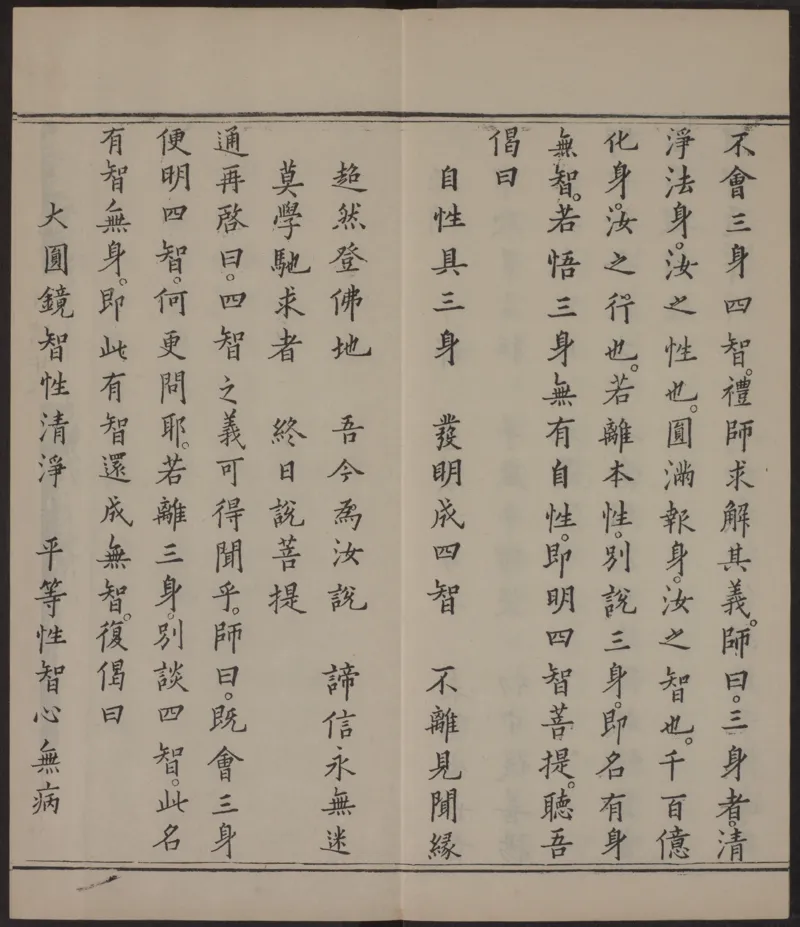 不會三身四智。禮師求解其義。師曰。三身者。清
淨法身。汝之性也。圓滿報身。汝之智也。千百億
化身。汝之行也。若離本性。別說三身。即名有身
無智。若悟三身無有自性。即明四智菩提。聽吾
偈曰
自性具三身　發明成四智　不離見聞緣
超然登佛地　吾今爲汝說　諦信永無迷
莫學馳求者　終日說菩提
通再啓曰。四智之義可得聞乎。師曰。既會三身
便明四智。何更問耶。若離三身。別談四智。此名
有智無身。即此有智還成無智。復偈曰
大圓鏡智性清淨　平等性智心無病